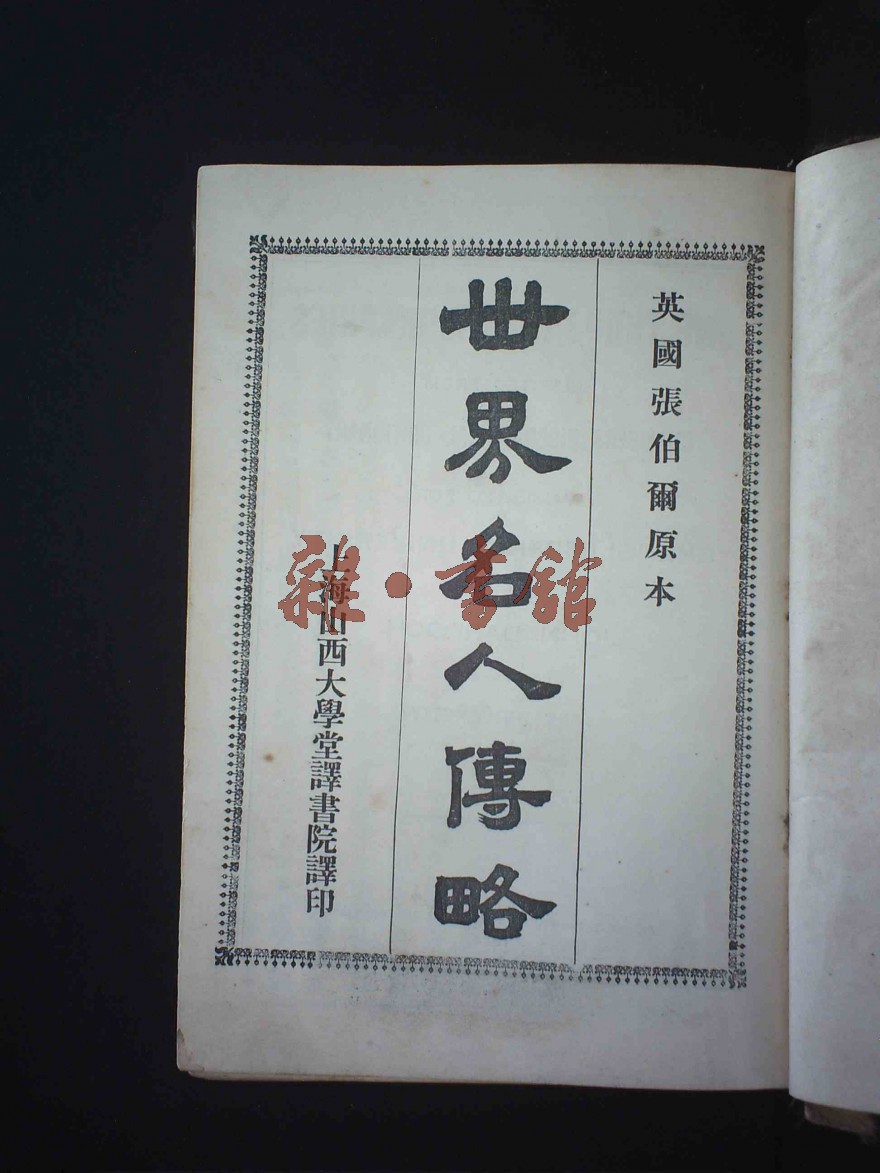 英國張伯爾原本
世界名人傳略
上海山西大學堂譯書院譯印
雜·書館